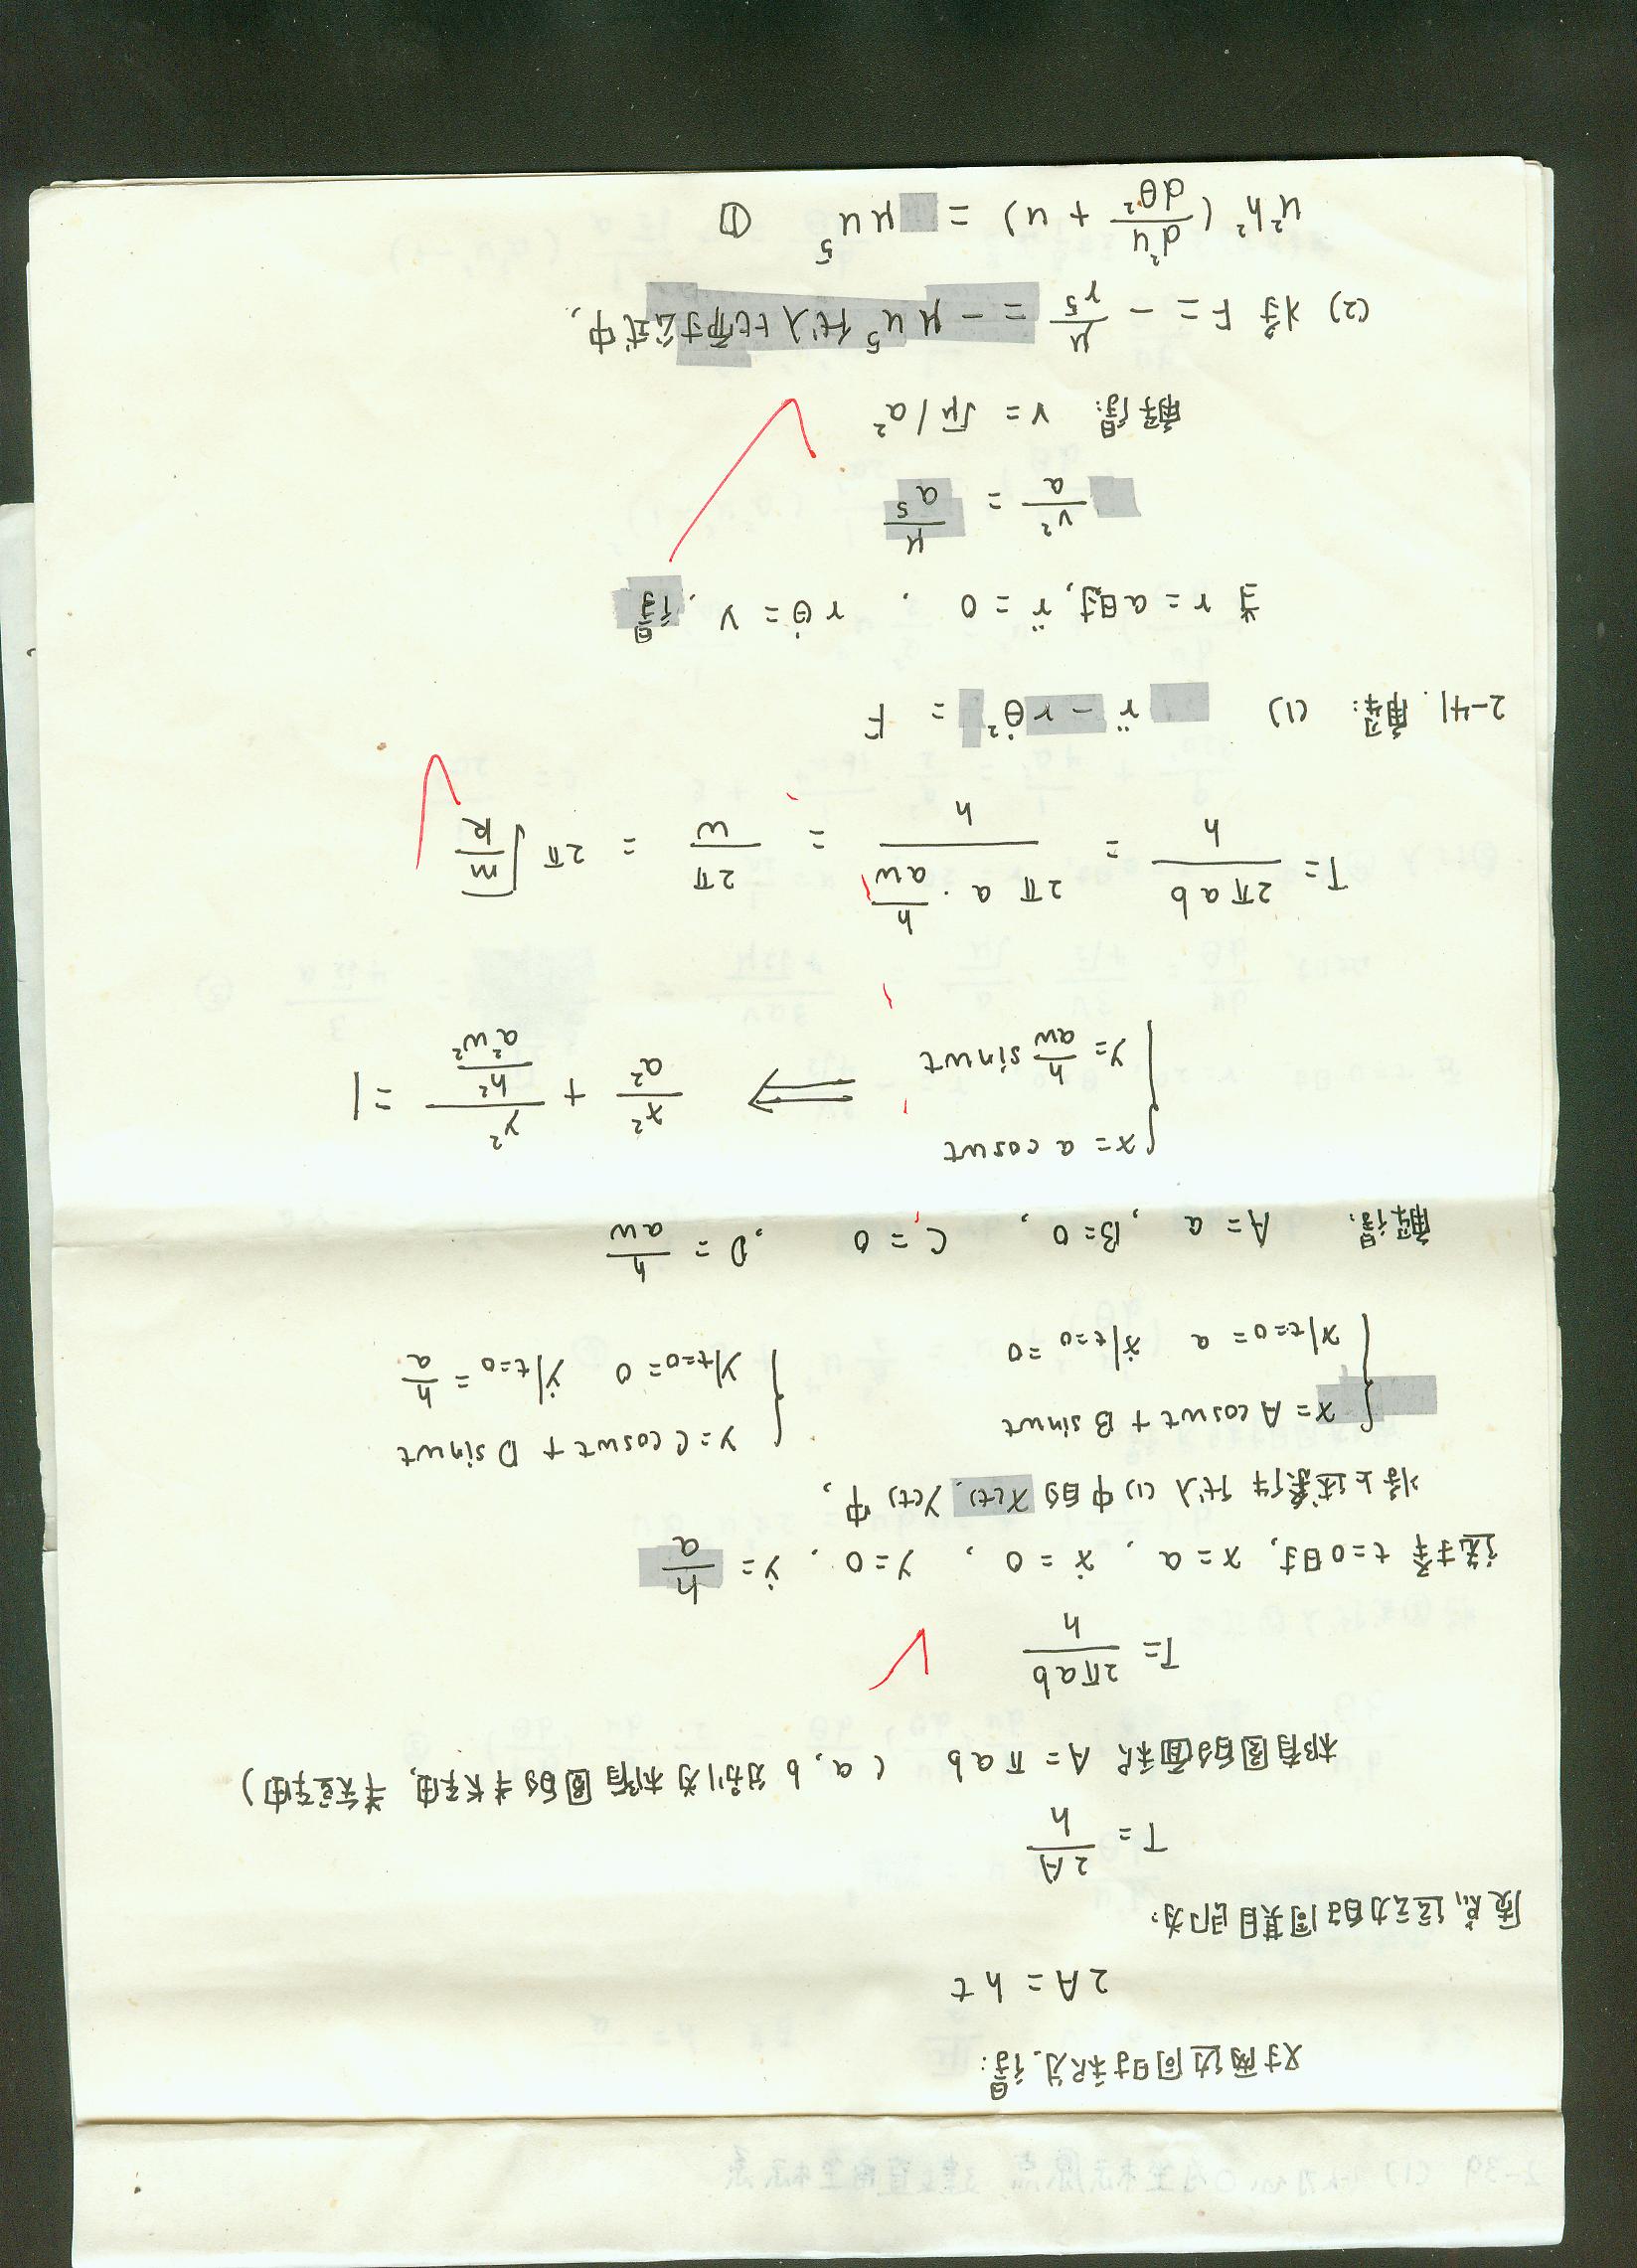 对两边同时积分,得:
2A = ht
质点运动的周期即为:
T = 2A/h
椭圆的面积 A = πab (a, b 分别为椭圆的半长轴, 半短轴)
T = 2πab/h
选择 t=0时, x=a, ẋ=0, y=0, ẏ= h/a
将上述条件代入(1)中的 x(t), y(t) 中,
{ x = A cosωt + B sinωt { y = C cosωt + D sinωt
x|t=0 = a ẋ|t=0 = 0 y|t=0 = 0 ẏ|t=0 = h/a
解得: A = a, B=0, C=0, D = h/(aω)
{ x = a cosωt
y = h/(aω) sinωt ⟹ x²/a² + y²/(h²/(a²ω²)) = 1
T = 2πab/h = (2π a · h/(aω))/h = 2π/ω = 2π√(m/k)
2-41. 解: (1) r̈ - rθ̇² = F
当 r = a时, r̈ = 0, rθ̇ = V, 得
v²/a = μ/a⁵
解得: v = √μ/a²
(2) 将 F = - μ/r⁵ = - μu⁵ 代入比耐公式中,
u²h² (d²u/dθ² + u) = μu⁵ ①